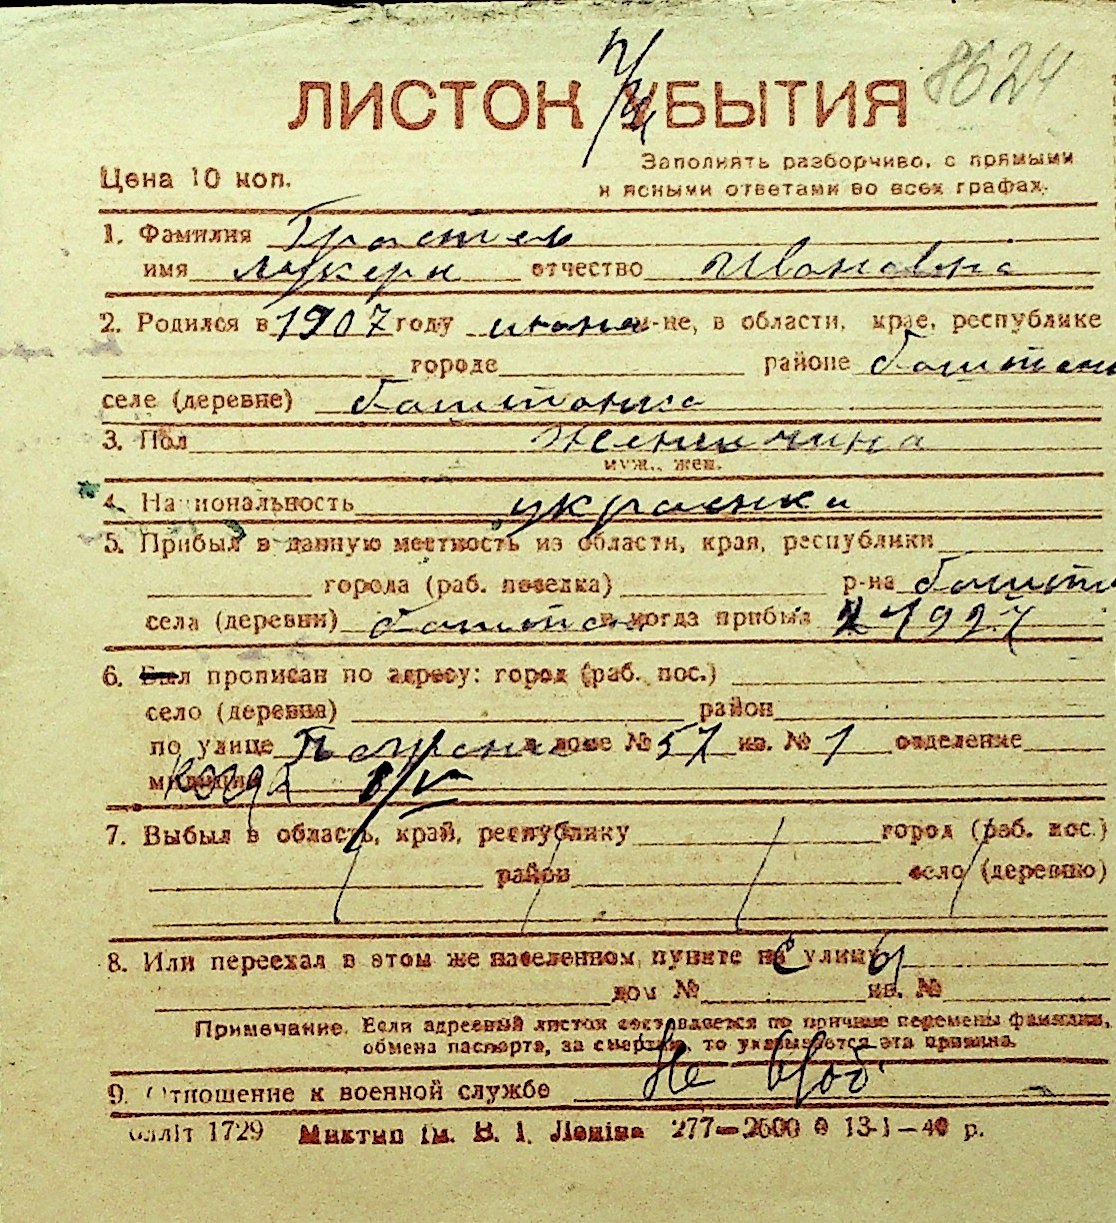 8624
ЛИСТОК УБЫТИЯ
Цена 10 коп.
Заполнять разборчиво, с прямыми
и ясными ответами во всех графах.
1. Фамилия
имя Лукери отчество Ивановна
2. Родился в 1907 году июня м-не, в области, крае, республике
городе районе баштан
селе (деревне) баштанка
3. Пол женщина
муж., жен.
4. Национальность украенка
5. Прибыл в данную местность из области, края, республики
города (раб. поселка) р-на башт
села (деревни) баштан и когда прибыл 1927
6. Был прописан по адресу: город (раб. пос.)
село (деревня) район
по улице в доме № 57 кв. № 1 отделение
милиции когда
7. Выбыл в область, край, республику город (раб. пос.)
район село (деревню)
8. Или переехал в этом же населенном пункте на улицу
дом № кв. №
Примечание. Если адресный листок составляется по причине перемены фамилии,
обмена паспорта, за смертью, то указывается эта причина.
9. Отношение к военной службе Не
літ 1729 Миктип ім. В. І. Леніна 277—2600 0 13-1—40 р.